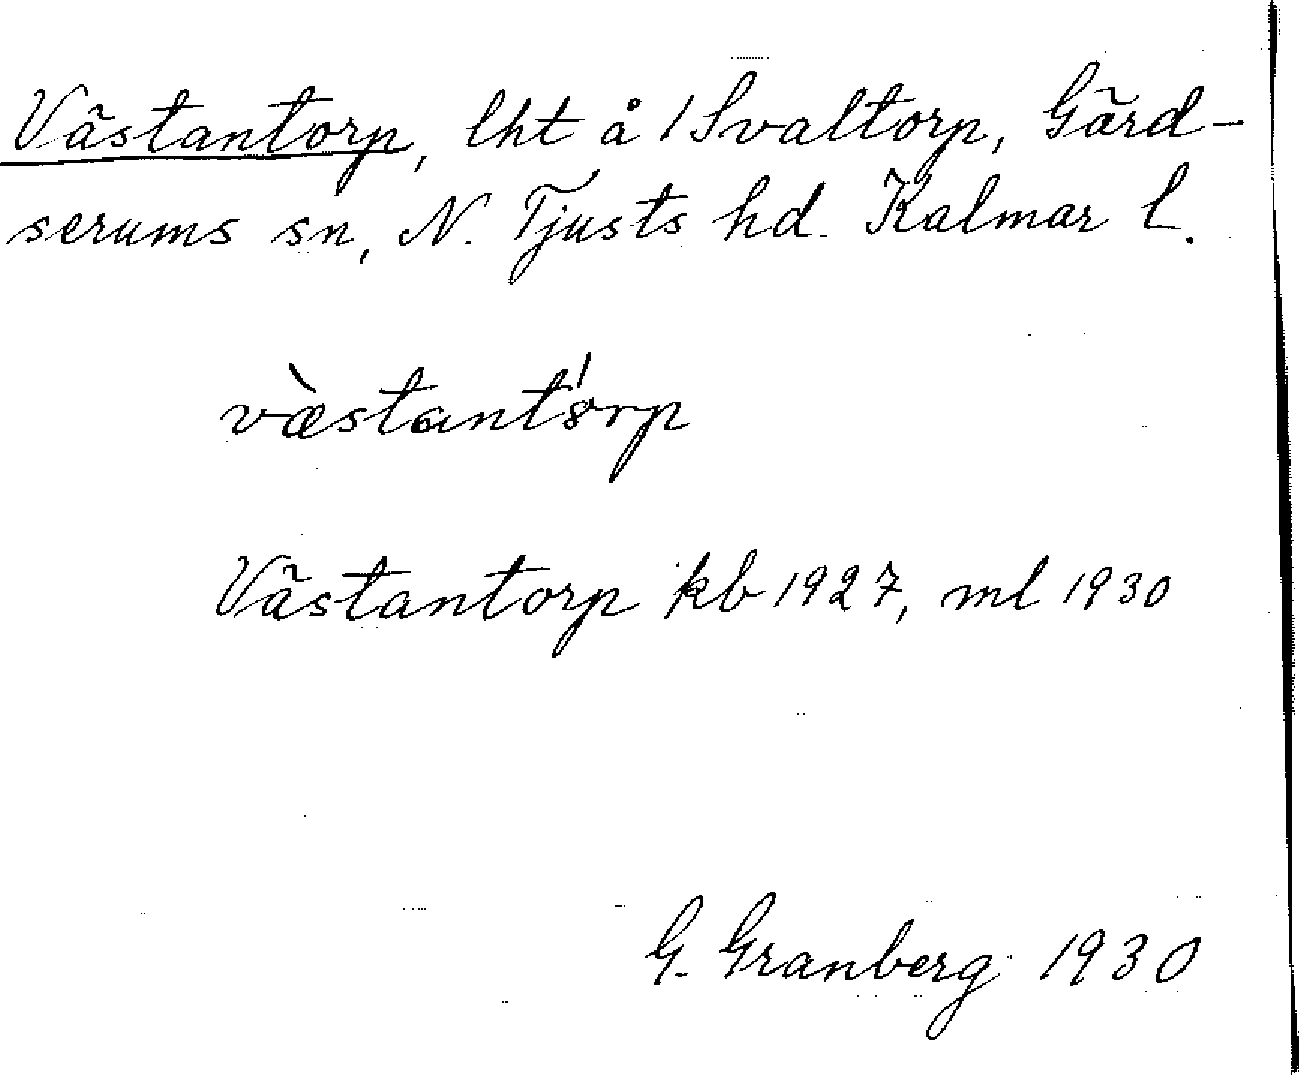 Västantorp, lht å 1 Svaltorp, Gärd-
serums sn, N. Tjusts hd. Kalmar l.
væ̀stantórp
Västantorp kb 1927, ml 1930
G. Granberg 1930